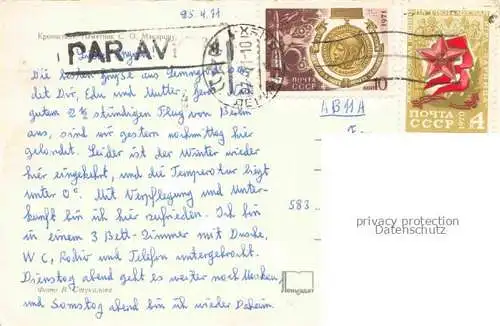 25.4.71
Кронштадт. Памятник С. О. Макарову.
PAR AV
1971
10
ПОЧТА
СССР
ПОЧТА
СССР 1970
4
АВИА
Die besten Grüße aus Leningrad
dir Dir, Edu und Mutter,
gutem 2½ stündigen Flug von Berlin
aus, sind wir gestern nachmittag hier
gelandet. Leider ist der Winter wieder
hier eingekehrt, und die Temperatur liegt
unter 0°. Mit Verpflegung und Unter-
kunft bin ich hier zufrieden. Ich bin
in einem 3 Bett-Zimmer mit Dusche,
WC, Radio und Telefon untergebracht.
Dienstag abend geht es weiter nach Moskau
und Samstag abend bin ich wieder Daheim.
Фото В. Стукалова
583
privacy protection
Datenschutz